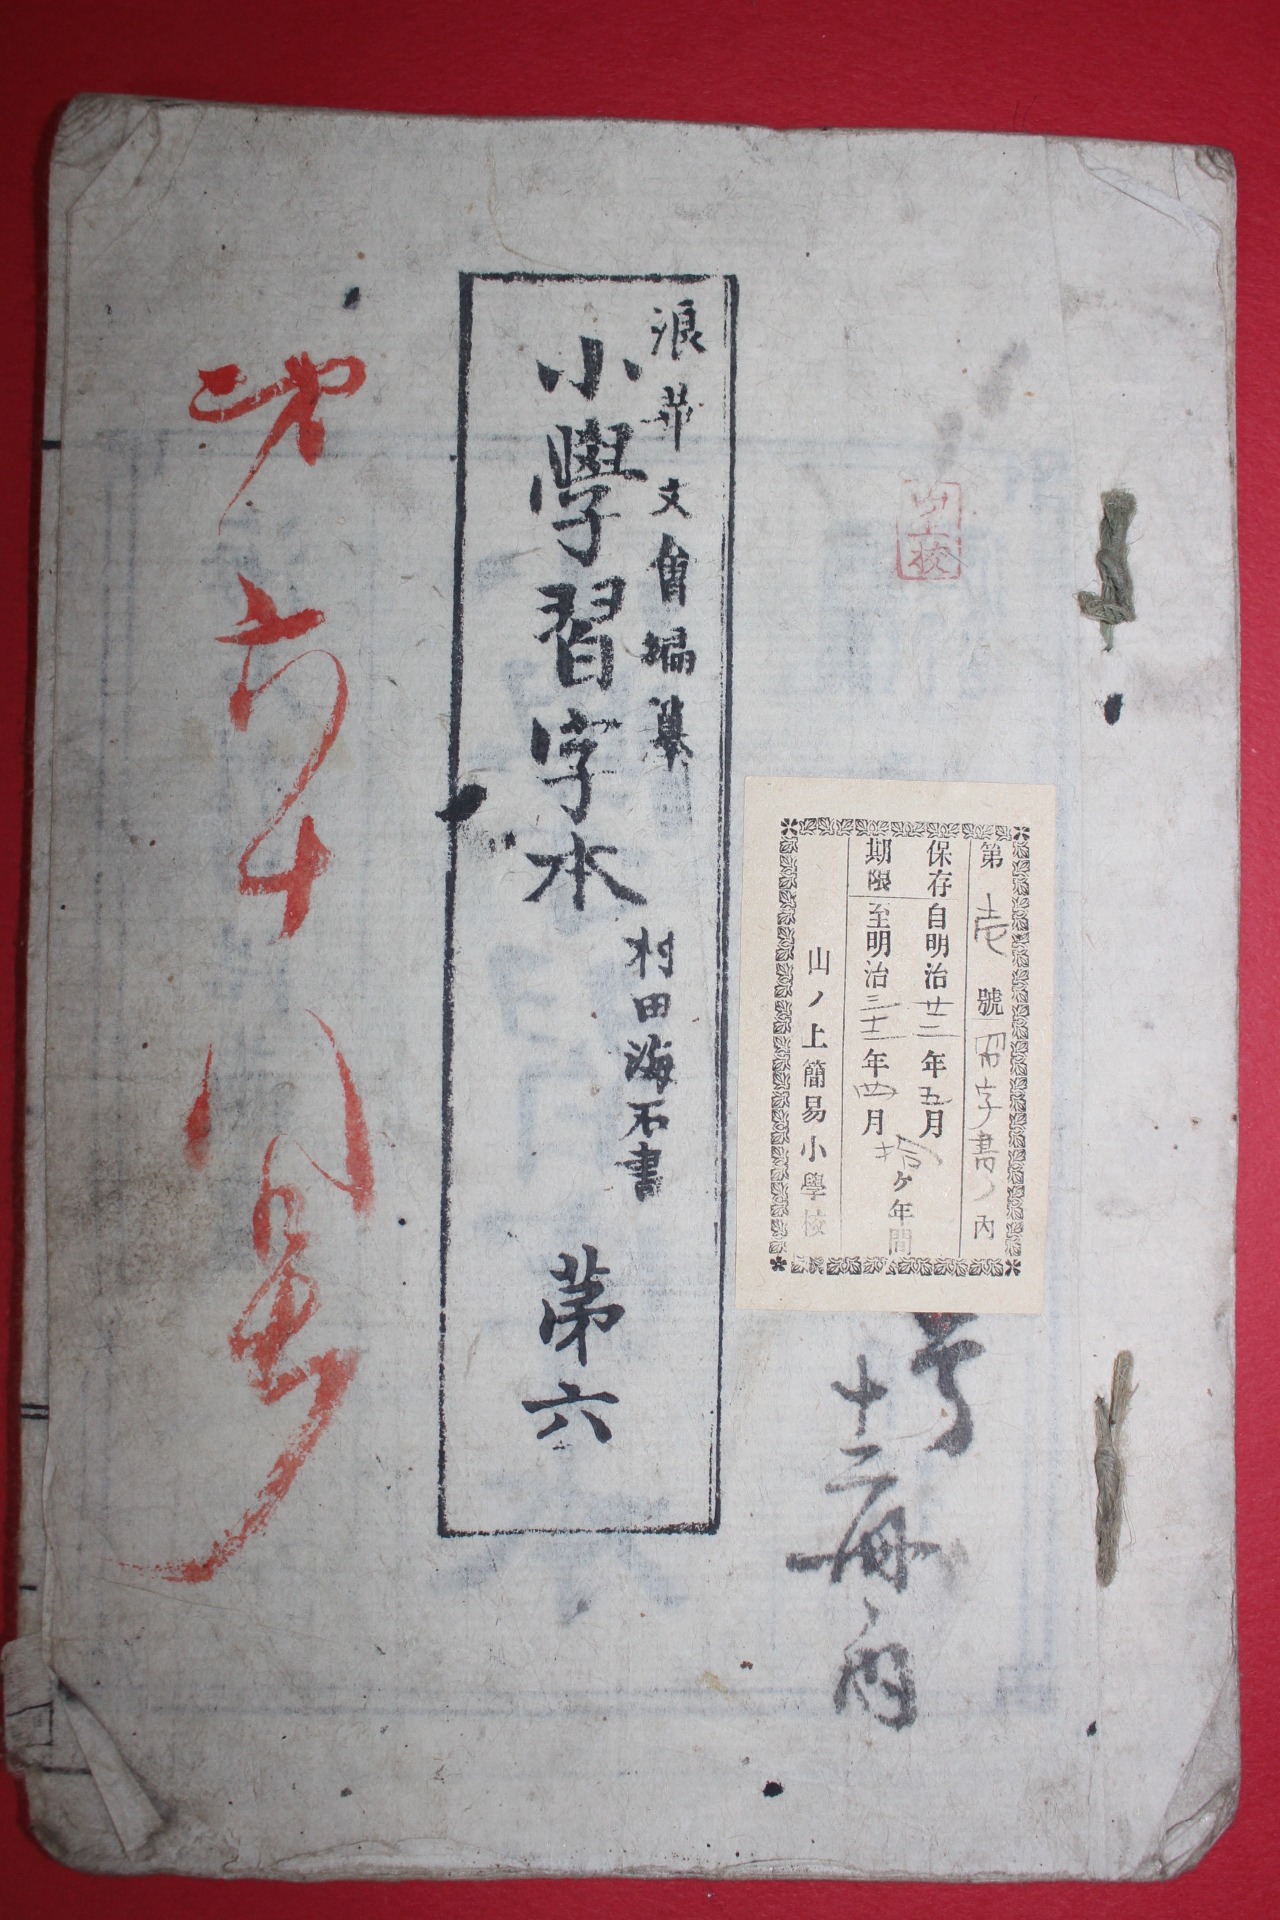 浪華文會編纂
小學習字本
村田海石書
第六
第壱號習字書ノ內
保存自明治廿二年五月
期限至明治三十二年四月
拾ヶ年間
山ノ上簡易小學校
号
十二冊ノ内
第六十八号
校